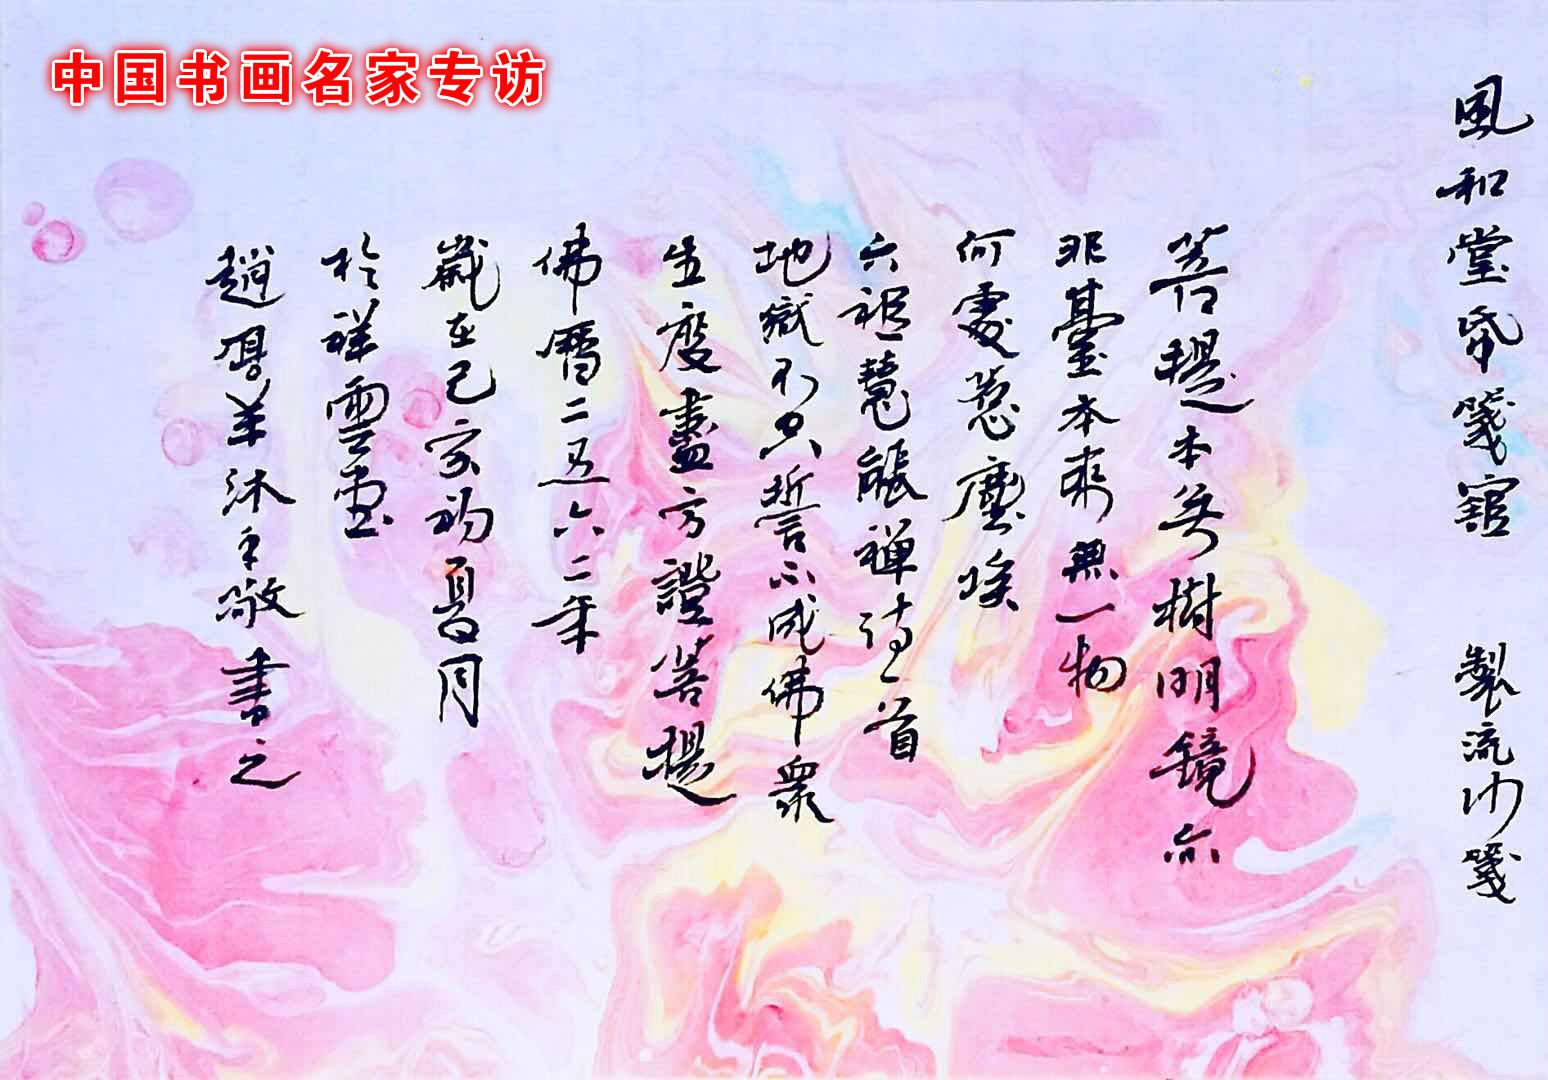 中国书画名家专访
風和堂帋箋館 製流沙箋
菩提本無樹明鏡亦
非臺本來無一物
何處惹塵埃
六祖慧能禅诗一首
地獄不只誓不成佛衆
生度盡方證菩提
佛曆二五六二年
歲在己亥初夏月
於祥雲
趙學羊沐手敬書之